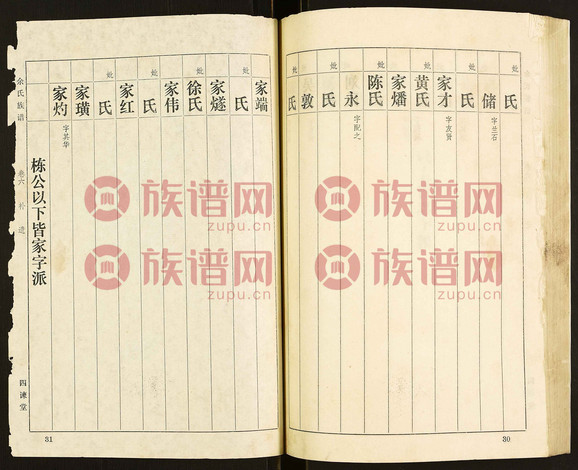 氏
储 字兰石
妣 氏
家才 字友贤
妣 黄氏
家燔
妣 陈氏
永 字配之
妣 氏
敦
妣 氏
30
家端
妣 氏
家燧
妣 徐氏
家伟
妣 氏
家红
妣 氏
家璜
家灼 字其华
栋公以下皆家字派
余氏族谱 卷六 补遗 四谏堂
31
族谱网
zupu.cn
族谱网
zupu.cn
族谱网
zupu.cn
族谱网
zupu.cn